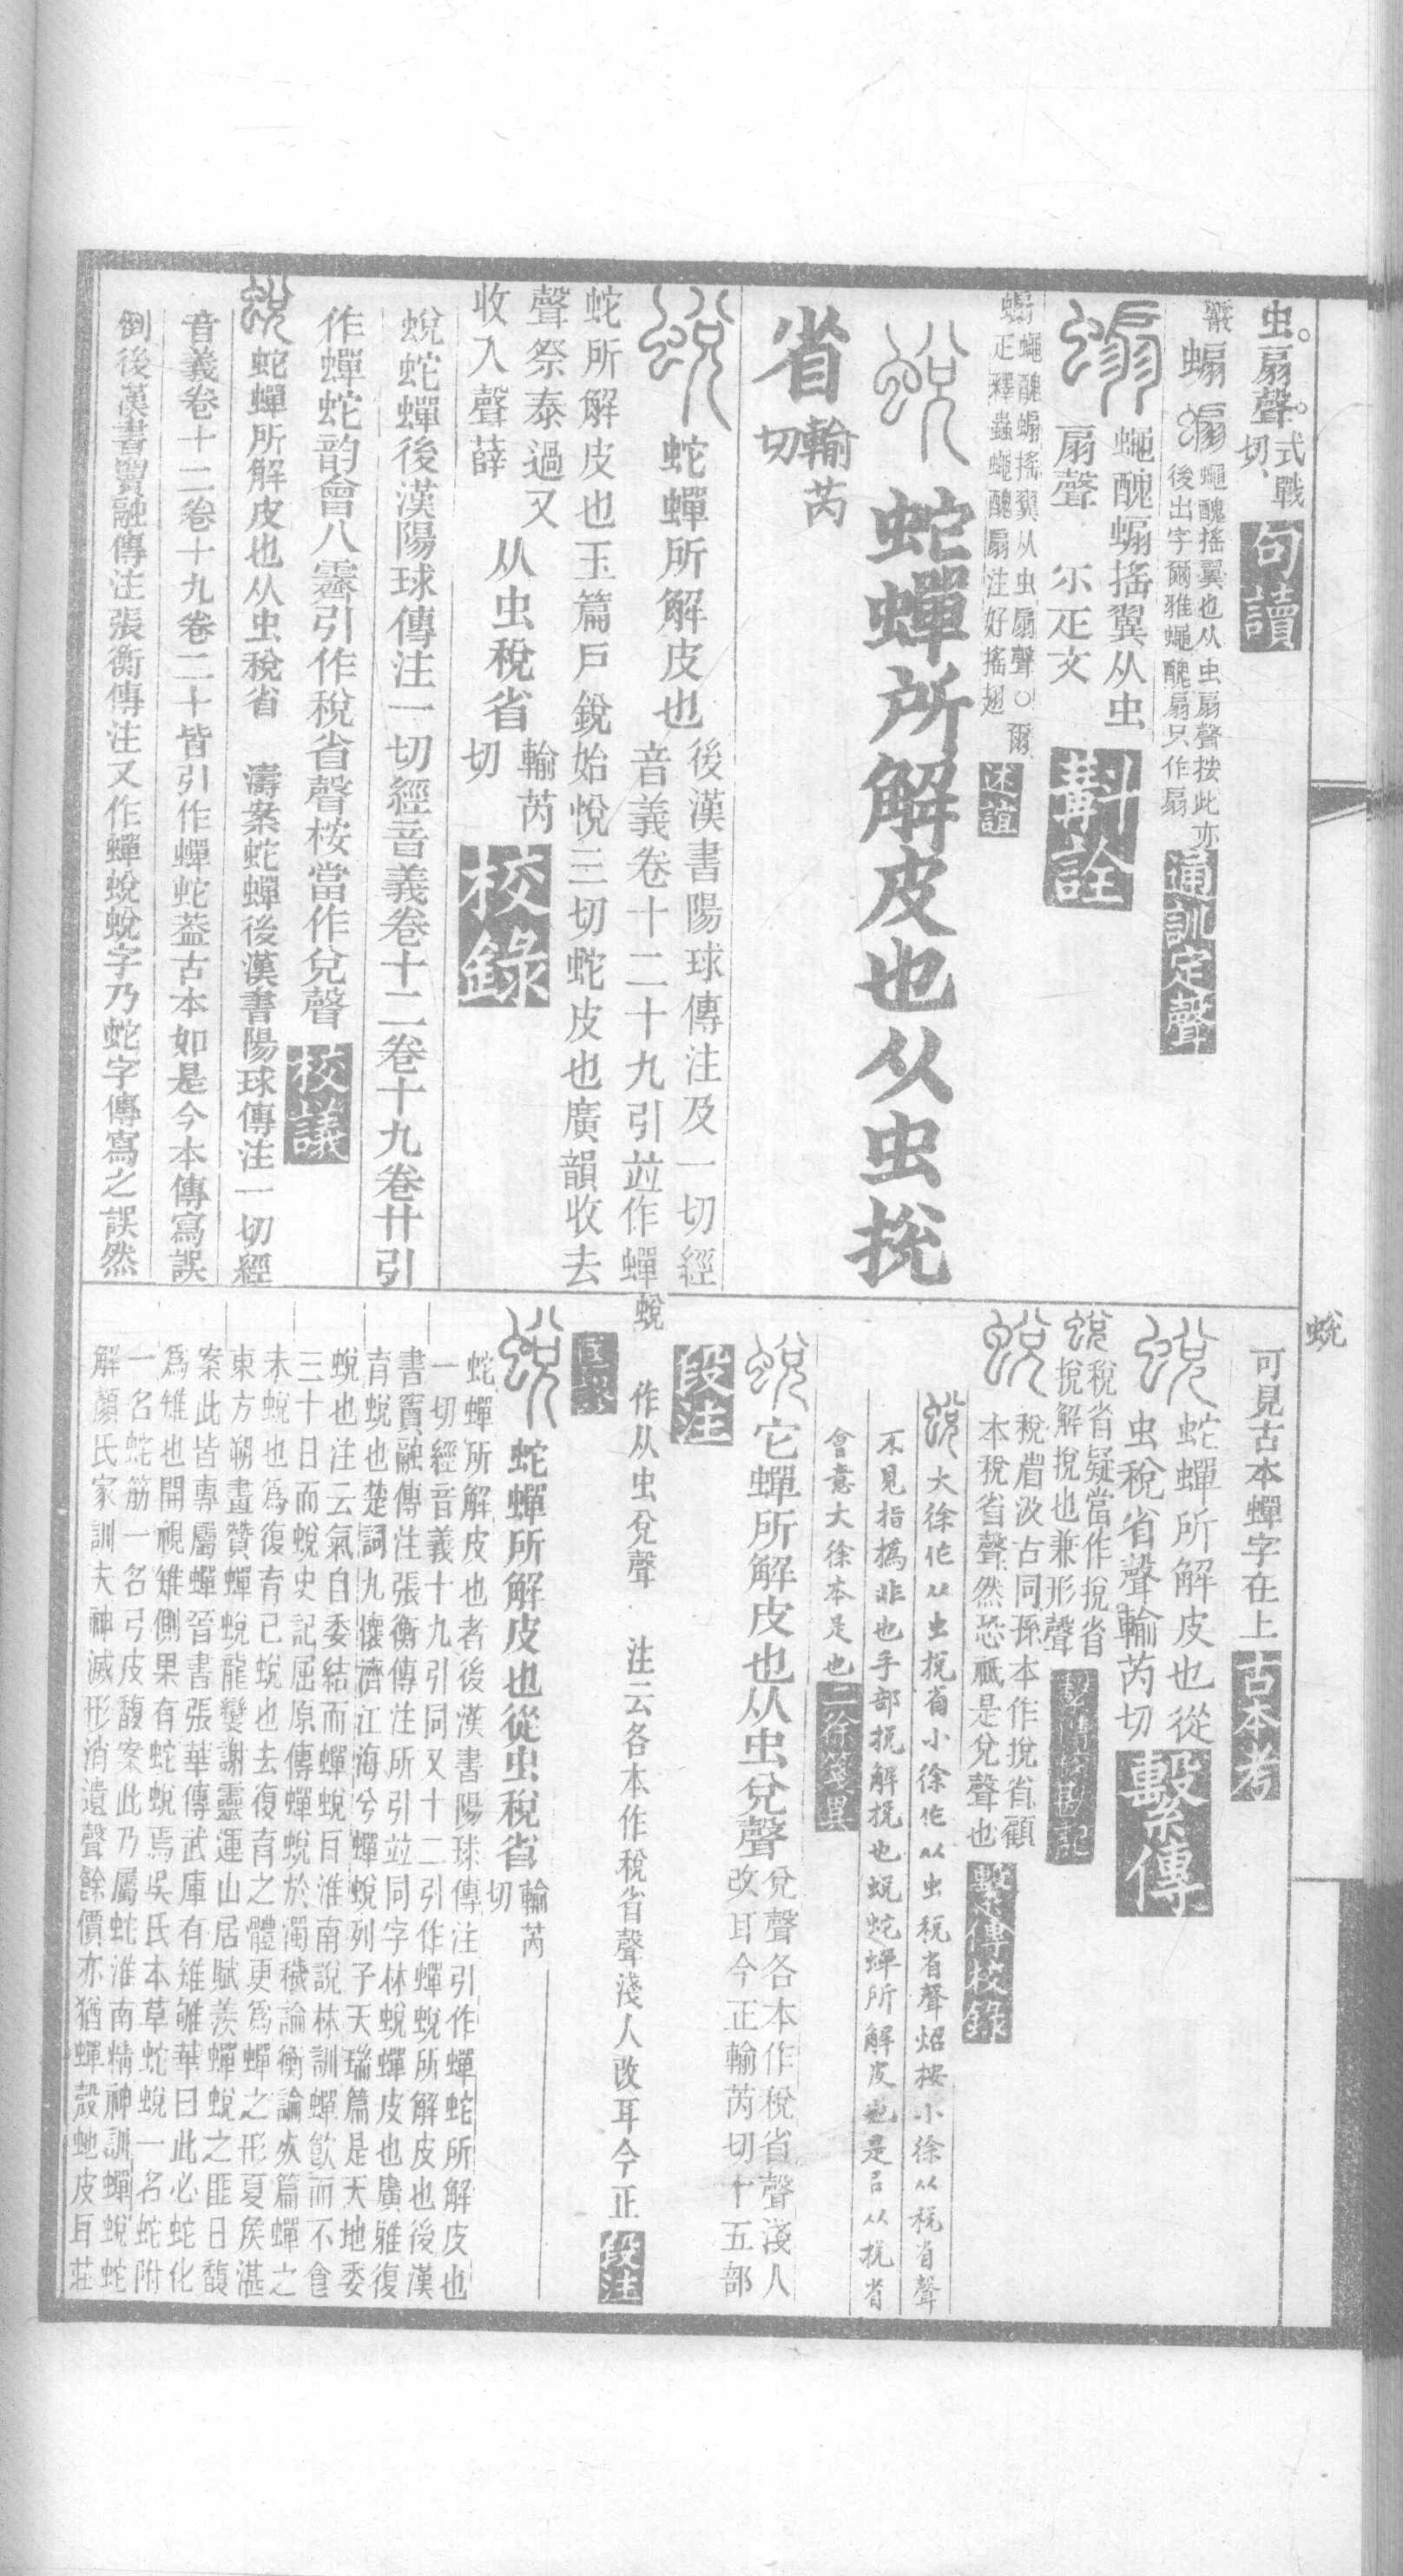 虫。扇聲。式戰
切、
句讀
蝙 蠅醜搖翼也从虫扇聲按此亦
後出字爾雅蠅醜扇只作扇
通訓定聲
蠅醜蝙搖翼从虫
扇聲 尒疋文
斠詮
蠅醜蝙搖翼从虫扇聲○爾
疋釋蟲蠅醜扇注好搖翅
述誼
蛻 蛇蟬所解皮也从虫挩
省 輸芮
切
蛻 蛇蟬所解皮也 後漢書陽球傳注及一切經
音義卷十二十九引並作蟬蛻
蛇所解皮也玉篇戶銳始悅三切蛇皮也廣韻收去
聲祭泰過又
收入聲薛
从虫稅省 輸芮
切
校錄
蛻蛇蟬後漢陽球傳注一切經音義卷十二卷十九卷廿引
作蟬蛇韵會八霽引作稅省聲桉當作兌聲
校議
蛻蛇蟬所解皮也从虫稅省 濤案蛇蟬後漢書陽球傳注一切經
音義卷十二卷十九卷二十皆引作蟬蛇葢古本如是今本傳寫誤
倒後漢書竇融傳注張衡傳注又作蟬蛻蛻字乃蛇字傳寫之誤然
蛻
可見古本蟬字在上
古本考
蛻 蛇蟬所解皮也從
虫稅省聲輸芮切
繫傳
蛻稅省疑當作挩省
挩解挩也兼形聲
蛻 稅省汲古同孫本作挩省顧
本稅省聲然恐祗是兌聲也
繫傳校錄
蛻大徐作从虫挩省小徐作从虫稅省聲炤按小徐从稅省聲
不見指撝非也手部挩解挩也蛻蛇蟬所解皮也是㠯从挩省
會意大徐本是也
二徐箋異
蛻 它蟬所解皮也从虫兌聲 兌聲各本作稅省聲淺人
改耳今正輸芮切十五部
段注
作从虫兌聲 注云各本作稅省聲淺人改耳今正
段注
蛻 蛇蟬所解皮也從虫稅省 輸芮
切
蛇蟬所解皮也者後漢書陽球傳注引作蟬蛇所解皮也
一切經音義十九引同又十二引作蟬蛻所解皮也後漢
書竇融傳注張衡傳注所引並同字林蛻蟬皮也廣雅復
育蛻也楚詞九懷濟江海兮蟬蛻列子天瑞篇是天地委
蛻也注云氣自委結而蟬蛻目淮南說林訓蟬飮而不食
三十日而蛻史記屈原傳蟬蛻於濁穢論衡論死篇蟬之
未蛻也爲復育已蛻也去復育之體更爲蟬之形夏矦湛
東方朔畫贊蟬蛻龍變謝靈運山居賦羨蟬蛻之匪日馥
案此皆專屬蟬晉書張華傳武庫有雉雊華曰此必蛇化
爲雉也開視雉側果有蛇蛻焉吳氏本草蛇蛻一名蛇附
一名蛇筋一名弓皮馥案此乃屬蛇淮南精神訓蟬蛻蛇
解顏氏家訓夫神滅形消遺聲餘價亦猶蟬殼虵皮耳莊